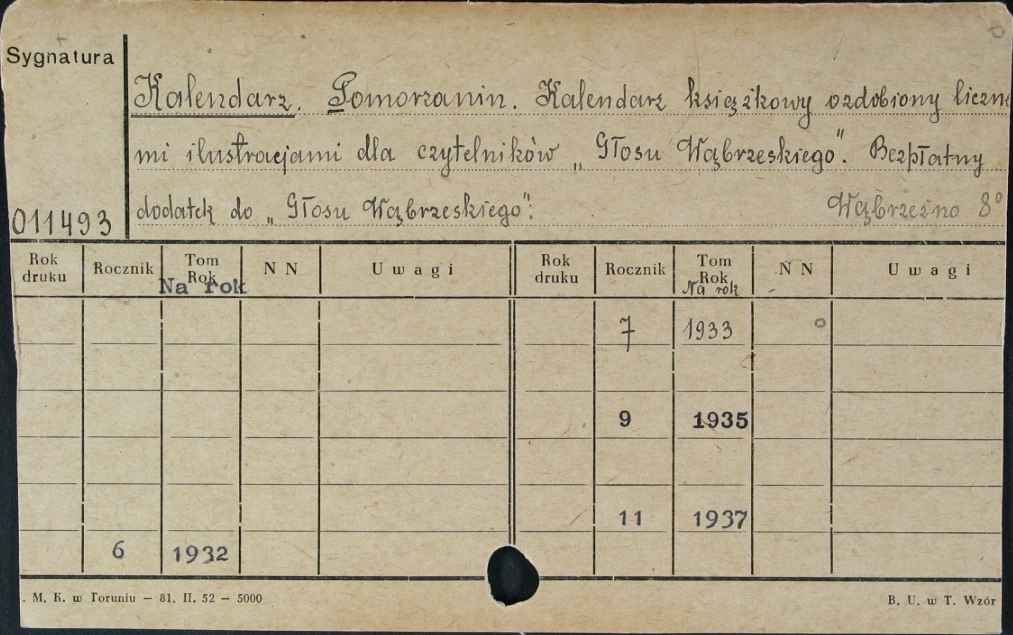 Sygnatura
Kalendarz. Pomorzanin. Kalendarz książkowy ozdobiony liczne
mi ilustracjami dla czytelników „Głosu Wąbrzeskiego". Bezpłatny
011493 dodatek do „Głosu Wąbrzeskiego". Wąbrzeźno 8°
Rok druku Rocznik Tom Rok Na rok N N Uwagi Rok druku Rocznik Tom Rok Na rok N N Uwagi
7 1933
9 1935
11 1937
6 1932
. M. K. w Toruniu — 81. II. 52 — 5000 B. U. w T. Wzór